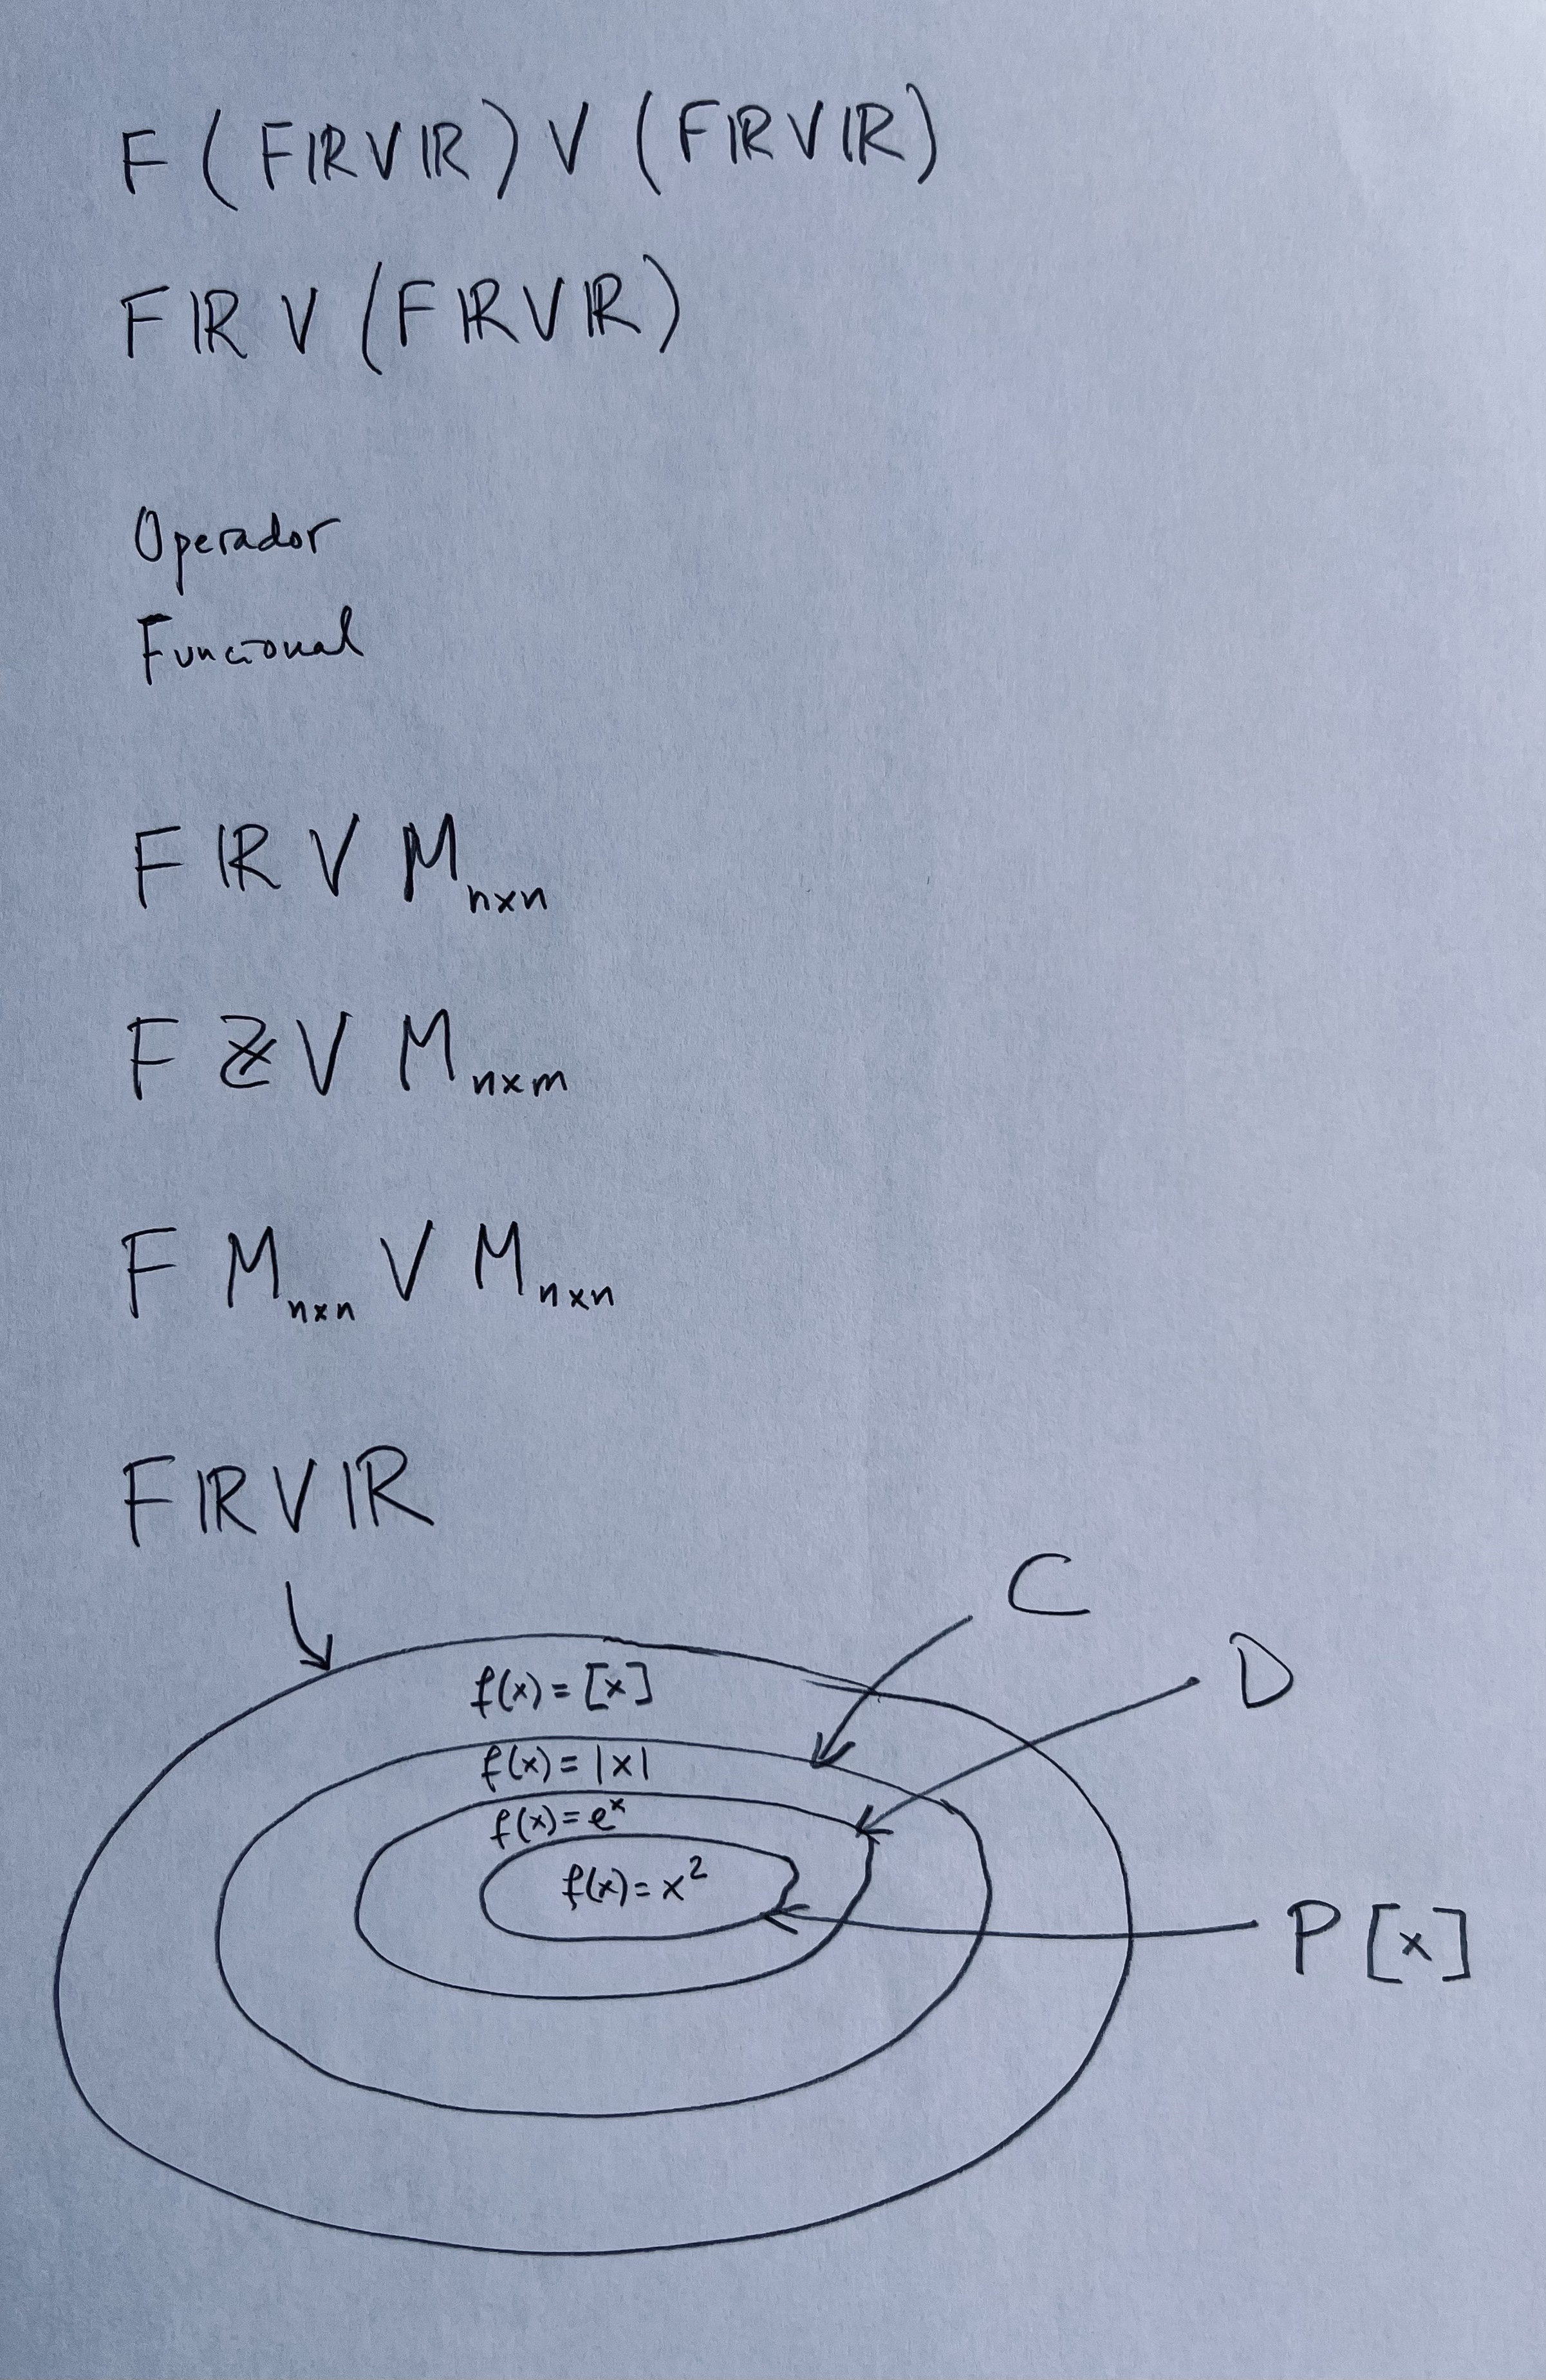 F (FℝVℝ) V (FℝVℝ)
FℝV (FℝVℝ)
Operador
Funcional
FℝV Mₙₓₙ
FℤV Mₙₓₘ
F Mₙₓₙ V Mₙₓₙ
FℝVℝ
C
D
f(x) = [x]
f(x) = |x|
f(x) = eˣ
f(x) = x²
P[x]